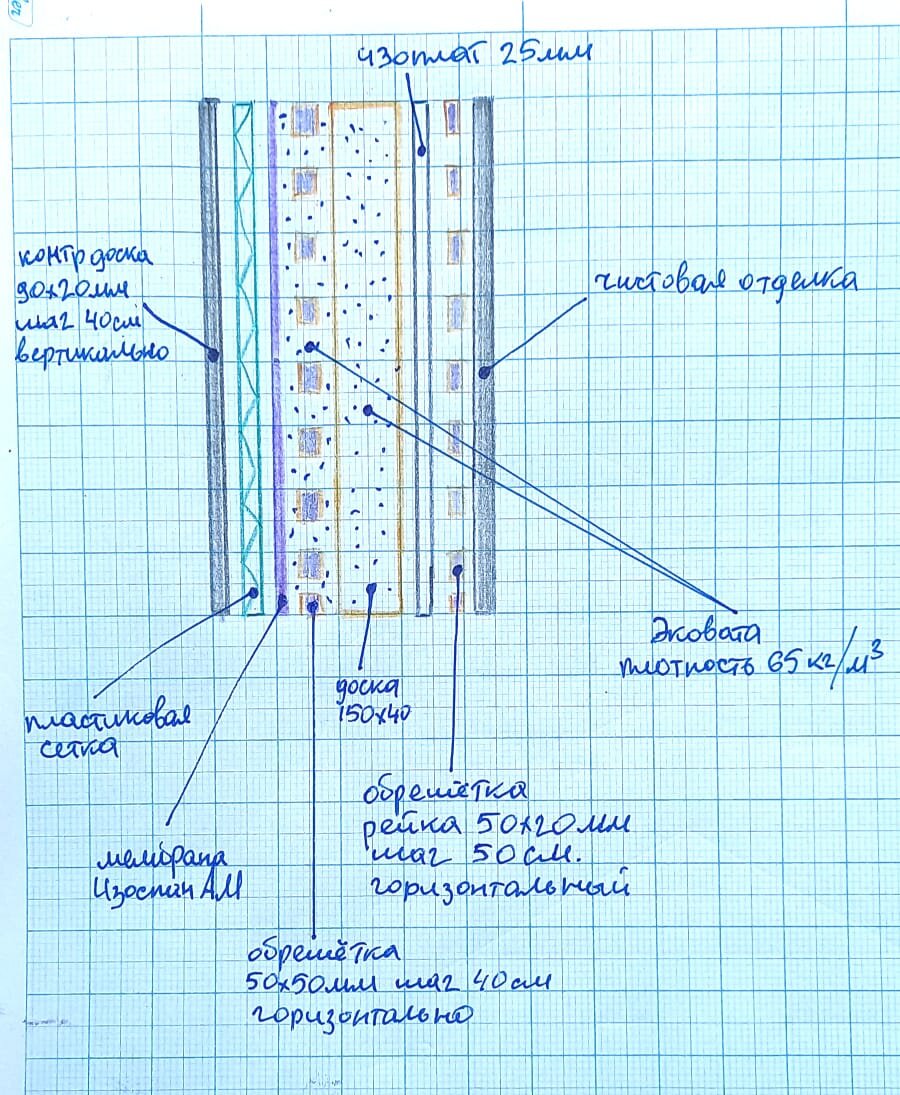 изоплат 25мм
контр доска
90х20мм
шаг 40см
вертикально
чистовая отделка
Эковата
плотность 65 кг/м³
пластиковая
сетка
доска
150х40
мембрана
Изоспан АМ
обрешётка
рейка 50х20мм
шаг 50см.
горизонтальный
обрешётка
50х50мм шаг 40см
горизонтально